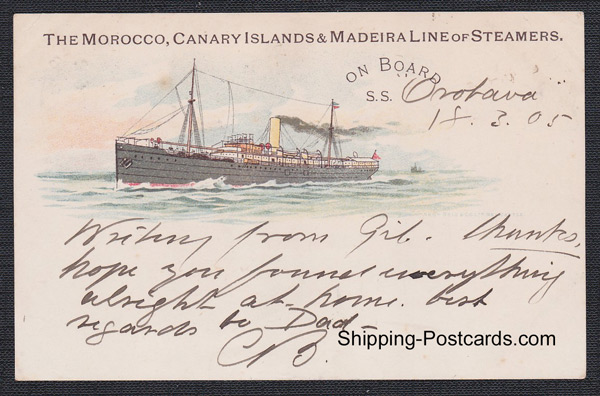 THE MOROCCO, CANARY ISLANDS & MADEIRA LINE OF STEAMERS.
ON BOARD
S.S. "Orotava"
18.3.05
Writing from Gib. Thanks,
hope you found everything
alright at home. best
regards to Dad—
CB.
Shipping-Postcards.com